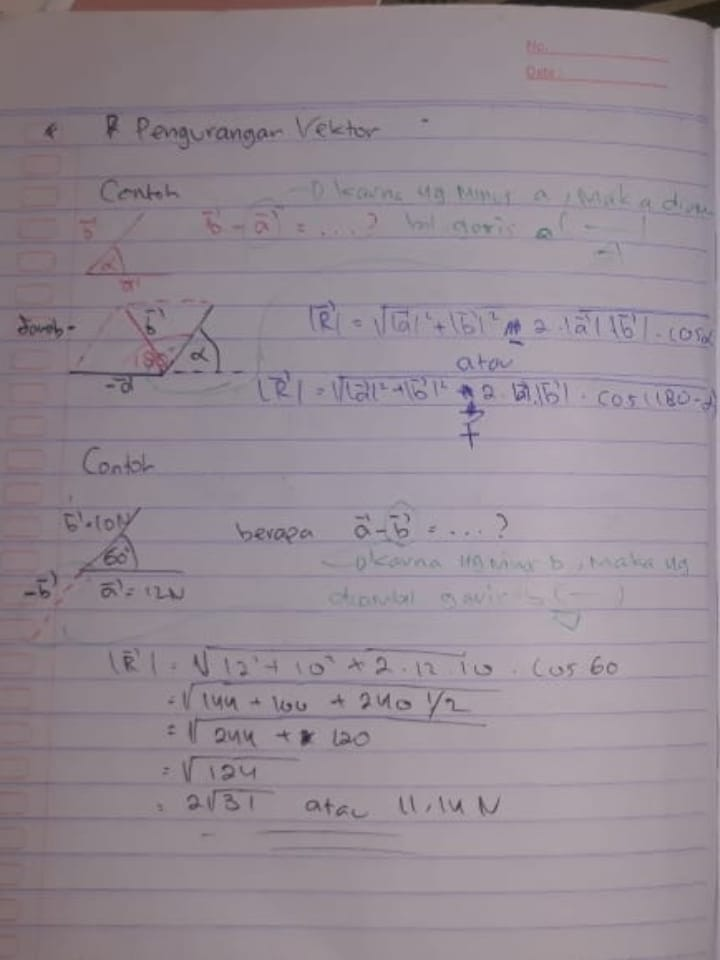 No.
Date:
* Pengurangan Vektor
Contoh
→ karna yg minus a, maka
b⃗ a⃗ α
b⃗ - a⃗ = ....? garis a (-
Jawab =
-a⃗ b⃗ α
|R⃗| = √|a⃗|² + |b⃗|² - 2 . |a⃗| |b⃗| . cos α
atau
|R⃗| = √|a⃗|² + |b⃗|² + 2 . |a⃗| . |b⃗| . cos (180 - α)
Contoh
b⃗ = 10N
60°
-b⃗ a⃗ = 12N
berapa a⃗ - b⃗ = ....?
→ karna yg minus b, maka yg
diambil garis b (-)
|R⃗| = √12² + 10² + 2 . 12 . 10 . cos 60
= √144 + 100 + 240 1/2
= √244 + 120
= √124
= 2√31 atau 11,14 N